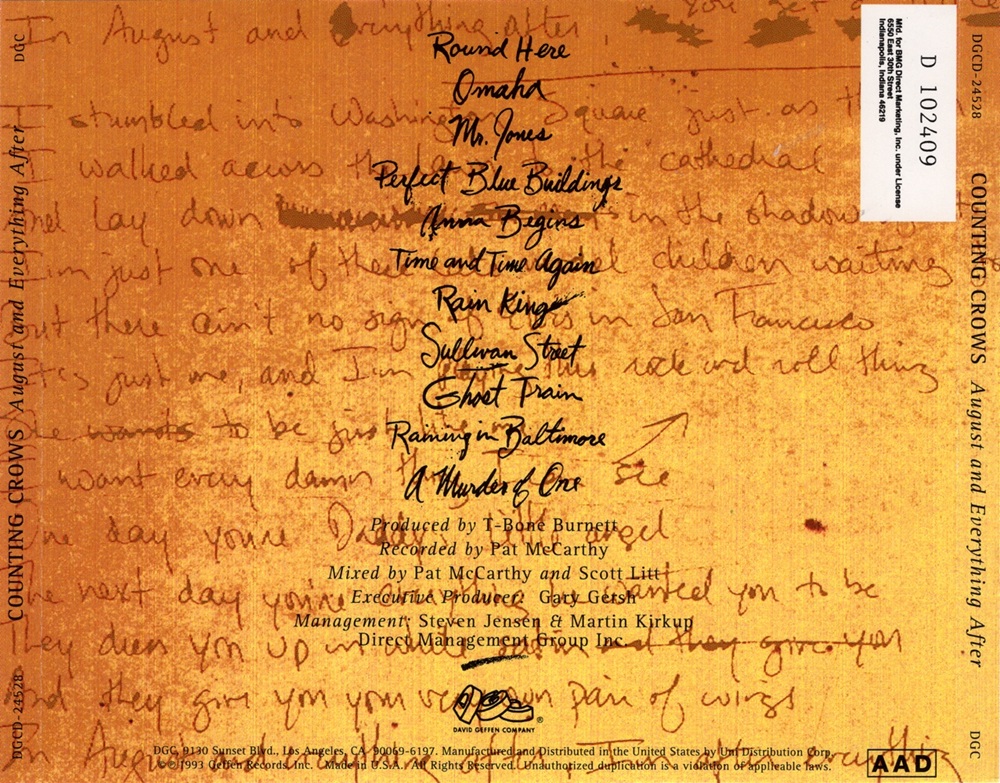 In August and Everything after, You get a
Round Here
Omaha
I stumbled into Washington Square just as th
Mr. Jones
I walked across the cathedral
Perfect Blue Buildings
and lay down in the shadow
Anna Begins
I'm just one of these children waiting
Time and Time Again
Rain King
but there ain't no sign of in San Francisco
Sullivan Street
It's just me, and I'm this rock and roll thing
Ghost Train
wants to be just like me
Raining in Baltimore
want every damn thing see
A Murder of One
Produced by T-Bone Burnett
One day you're Daddy's little angel
Recorded by Pat McCarthy
Mixed by Pat McCarthy and Scott Litt
The next day you're everything wanted you to be
Executive Producer: Gary Gersh
Management: Steven Jensen & Martin Kirkup
Direct Management Group Inc.
They dress you up in white satin and they give you
And they give you your very own pair of wings
DAVID GEFFEN COMPANY
®
In August and Everything after, I'm Everything
DGC, 9130 Sunset Blvd., Los Angeles, CA 90069-6197. Manufactured and Distributed in the United States by Uni Distribution Corp.
℗©1993 Geffen Records, Inc. Made in U.S.A. All Rights Reserved. Unauthorized duplication is a violation of applicable laws.
AAD
D 102409
Mfd. for BMG Direct Marketing, Inc. under License
6550 East 30th Street
Indianapolis, Indiana 46219
DGCD-24528 COUNTING CROWS August and Everything After DGC
DGCD-24528 COUNTING CROWS August and Everything After DGC